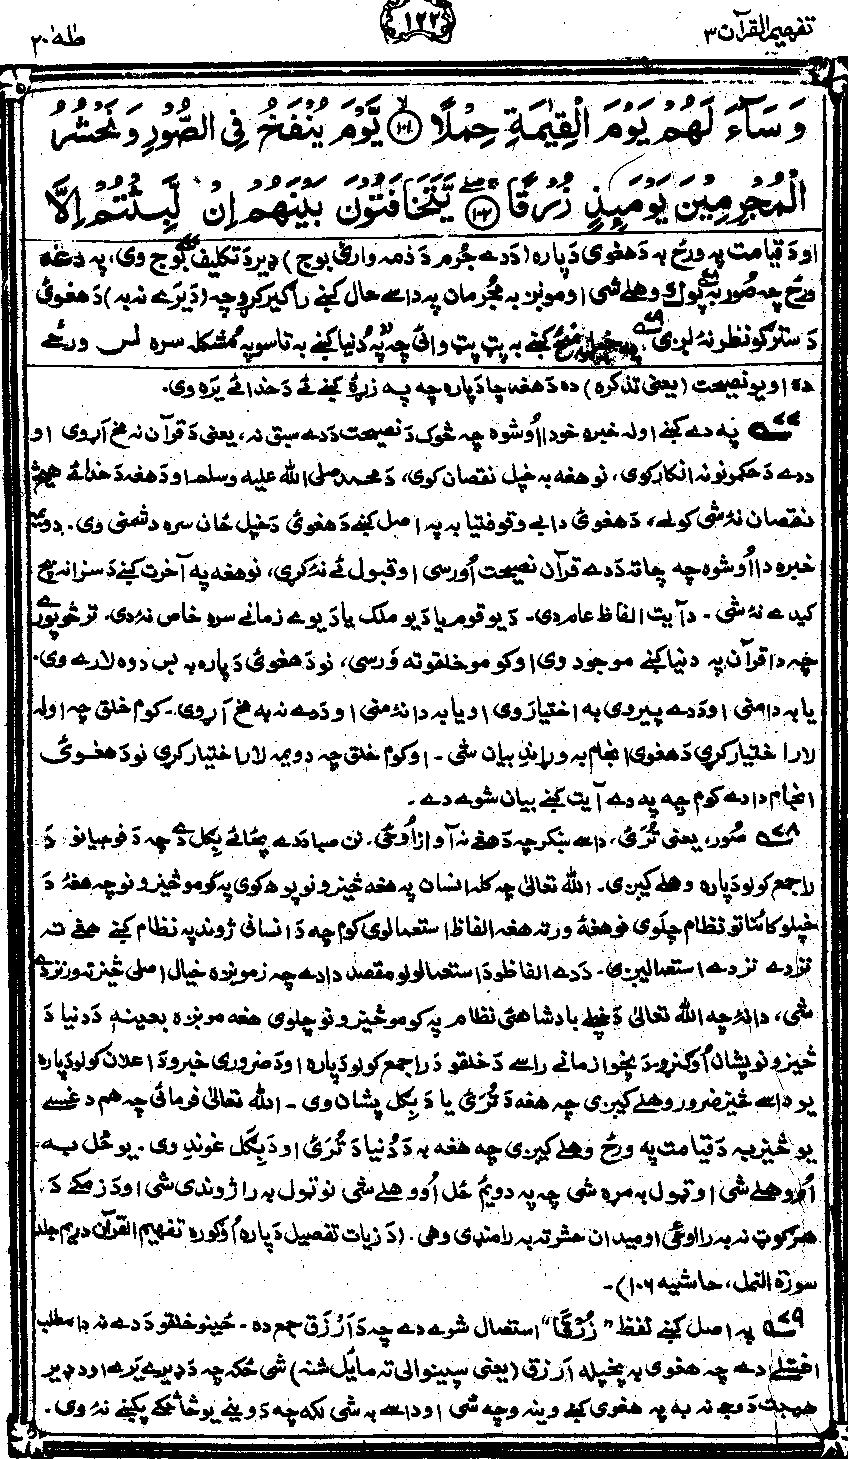 تفهيم القرآن ۳
۱۲۲
طٰهٰ ۲۰
وَسَآءَ لَهُمْ يَوْمَ الْقِيٰمَةِ حِمْلًا ﴿۱۰۱﴾ يَّوْمَ يُنْفَخُ فِى الصُّوْرِ وَنَحْشُرُ
الْمُجْرِمِيْنَ يَوْمَئِذٍ زُرْقًا ﴿۱۰۲﴾ يَّتَخَافَتُوْنَ بَيْنَهُمْ اِنْ لَّبِثْتُمْ اِلَّا
او دَ قيامت په ورځ به دَ هغوي دَپاره (دَ دے جُرم دَ ذمه وارئ بوج) ډير دَ تکليف بوج وي، په دغه
ورځ چه صُور به پُوک وهلے شي او مونږ به مُجرمان په داسے حال کښے راګير کړو چه (دَ يَرے نه به) دَ هغوئ
دَ سترګو نظر نۀ لږيږي کښے به پټ پټ وائي چه په دُنيا کښے به تاسو په مُشکله سره لس ورځے
ده او يو نصيحت (يعني تذکره) ده دَ هغه چا دَپاره چه په زړۀ کښے ئے دَ خدائے يَره وي.
۷۷ په دے کښے اوله خبره خو دا اُوشوه چه څوک دَ نصيحت دَ دے سبق نه، يعني دَ قرآن نه مخ اړوي او
دَ دے دَ حکمونو نه انکار کوي، نو هغه به خپل نقصان کوي، دَ محمد صلى الله عليه وسلم او دَ هغه دَ خدائے هيڅ
نقصان نۀ شي کولے، دَ هغوئ دا بے وقوفتيا به په اصل کښے دَ هغوئ دَ خپل ځان سره دشمني وي. دويمه
خبره دا اُوشوه چه چا ته دَ دے قرآن نصيحت اُورسي او قبول ئے نۀ کړي، نو هغه په آخرت کښے دَ سزا نه بچ
کيدے نۀ شي۔ دآيت الفاظ عام دي۔ دَ يو قوم يا دَ يو ملک يا دَ يوے زمانے سره خاص نۀ دي. تر څو پورے
چه دا قرآن په دنيا کښے موجود وي او کومو خلقو ته وَرسي، نو دَ هغوئ دَپاره به بس دوه لارے وي.
يا به دا مني او دَ دے پيروي به اختياروي او يا به دا نۀ مني او دَ دے نه به مخ اړوي۔ کوم خلق چه اوله
لار اختيار کړي دَ هغوي انجام به وړاندے بيان شي۔ او کوم خلق چه دويمه لار اختيار کړي نو دَ هغوئ
انجام دا دے کوم چه په دے آيت کښے بيان شوے دے۔
۷۸ صُور، يعني تُرَئ، داسے ښکر چه دَ هغے نه آواز اُوځي. نن صبا دَ دے په ځائے بِګل دے چه دَ فوجيانو دَ
راجمع کولو دَپاره وهلے کيږي۔ الله تعالىٰ چه کله انسان په هغه څيزونو پوهه کوي په کومو څيزونو چه هغۀ دَ
خپلو کائناتو نظام چلوي نو هغۀ ورته هغه الفاظ استعمالوي کوم چه دَ انساني ژوند په نظام کښے هغے ته
نزدے نزدے استعماليږي۔ دَ دے الفاظو دَ استعمالولو مقصد دا دے چه زمونږه خيال اصلي څيز ته ورنزدے
شي، دا نۀ چه الله تعالىٰ دَ خپلے بادشاهئ نظام په کومو څيزونو چلوي هغه مونږه بعينه دَ دنيا دَ
څيزونو پشان اُوګنړو۔ دَ پخوا زمانے راسے دَ خلقو دَ راجمع کولو دَپاره او دَ ضروري خبرو دَ اعلان کولو دَپاره
يو داسے څيز ضرور وهلے کيږي چه هغه دَ تُرَئ يا دَ بِګل پشان وي۔ الله تعالىٰ فرمائي چه هم دغسے
يو څيز به دَ قيامت په ورځ وهلے کيږي چه هغه به دَ دُنيا دَ تُرَئ او دَ بِګل غوندِ وي. يو ځل به
اُووهلے شي او ټول به مړه شي چه په دويم ځل اُووهلے شي نو ټول به را ژوندي شي او دَ زمکے دَ
هر ګوټ نه به را اوځي او ميدان حشر ته به را منډي وهي. (دَ زيات تفصيل دَپاره اُوګوره تفهيم القرآن دريم جلد
سورة النمل، حاشيه ۱۰۶)۔
۷۹ په اصل کښے لفظ "زُرْقًا" استعمال شوے دے چه دَ اَزْرَق جمع ده۔ ځينو خلقو دَ دے نه دا مطلب
اخستلے دے چه هغوي به پخپله اَزرق (يعني سپينوالي ته مايُل شنه) شي ځکه چه دَ ډيرے يَرے او دَ ډير
هيبت دَ وجے نه به په هغوي کښے وينه وچه شي او داسے به شي لکه چه دَ وينے يو څاڅکے پکښے نۀ وي.